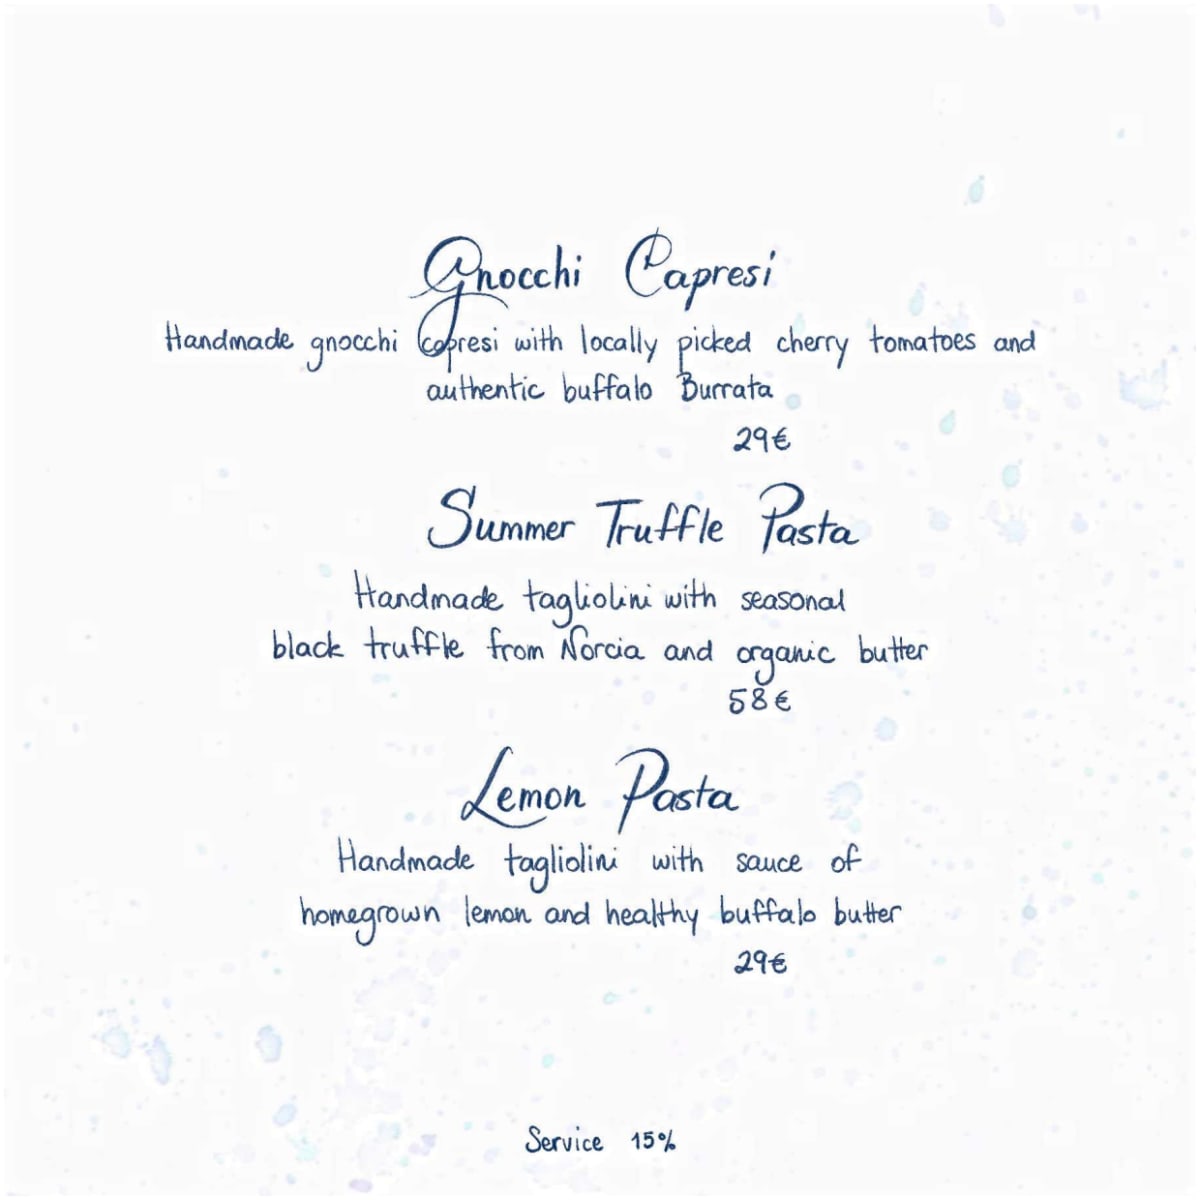 Gnocchi Capresi
Handmade gnocchi capresi with locally picked cherry tomatoes and
authentic buffalo Burrata
29€
Summer Truffle Pasta
Handmade tagliolini with seasonal
black truffle from Norcia and organic butter
58€
Lemon Pasta
Handmade tagliolini with sauce of
homegrown lemon and healthy buffalo butter
29€
Service 15%